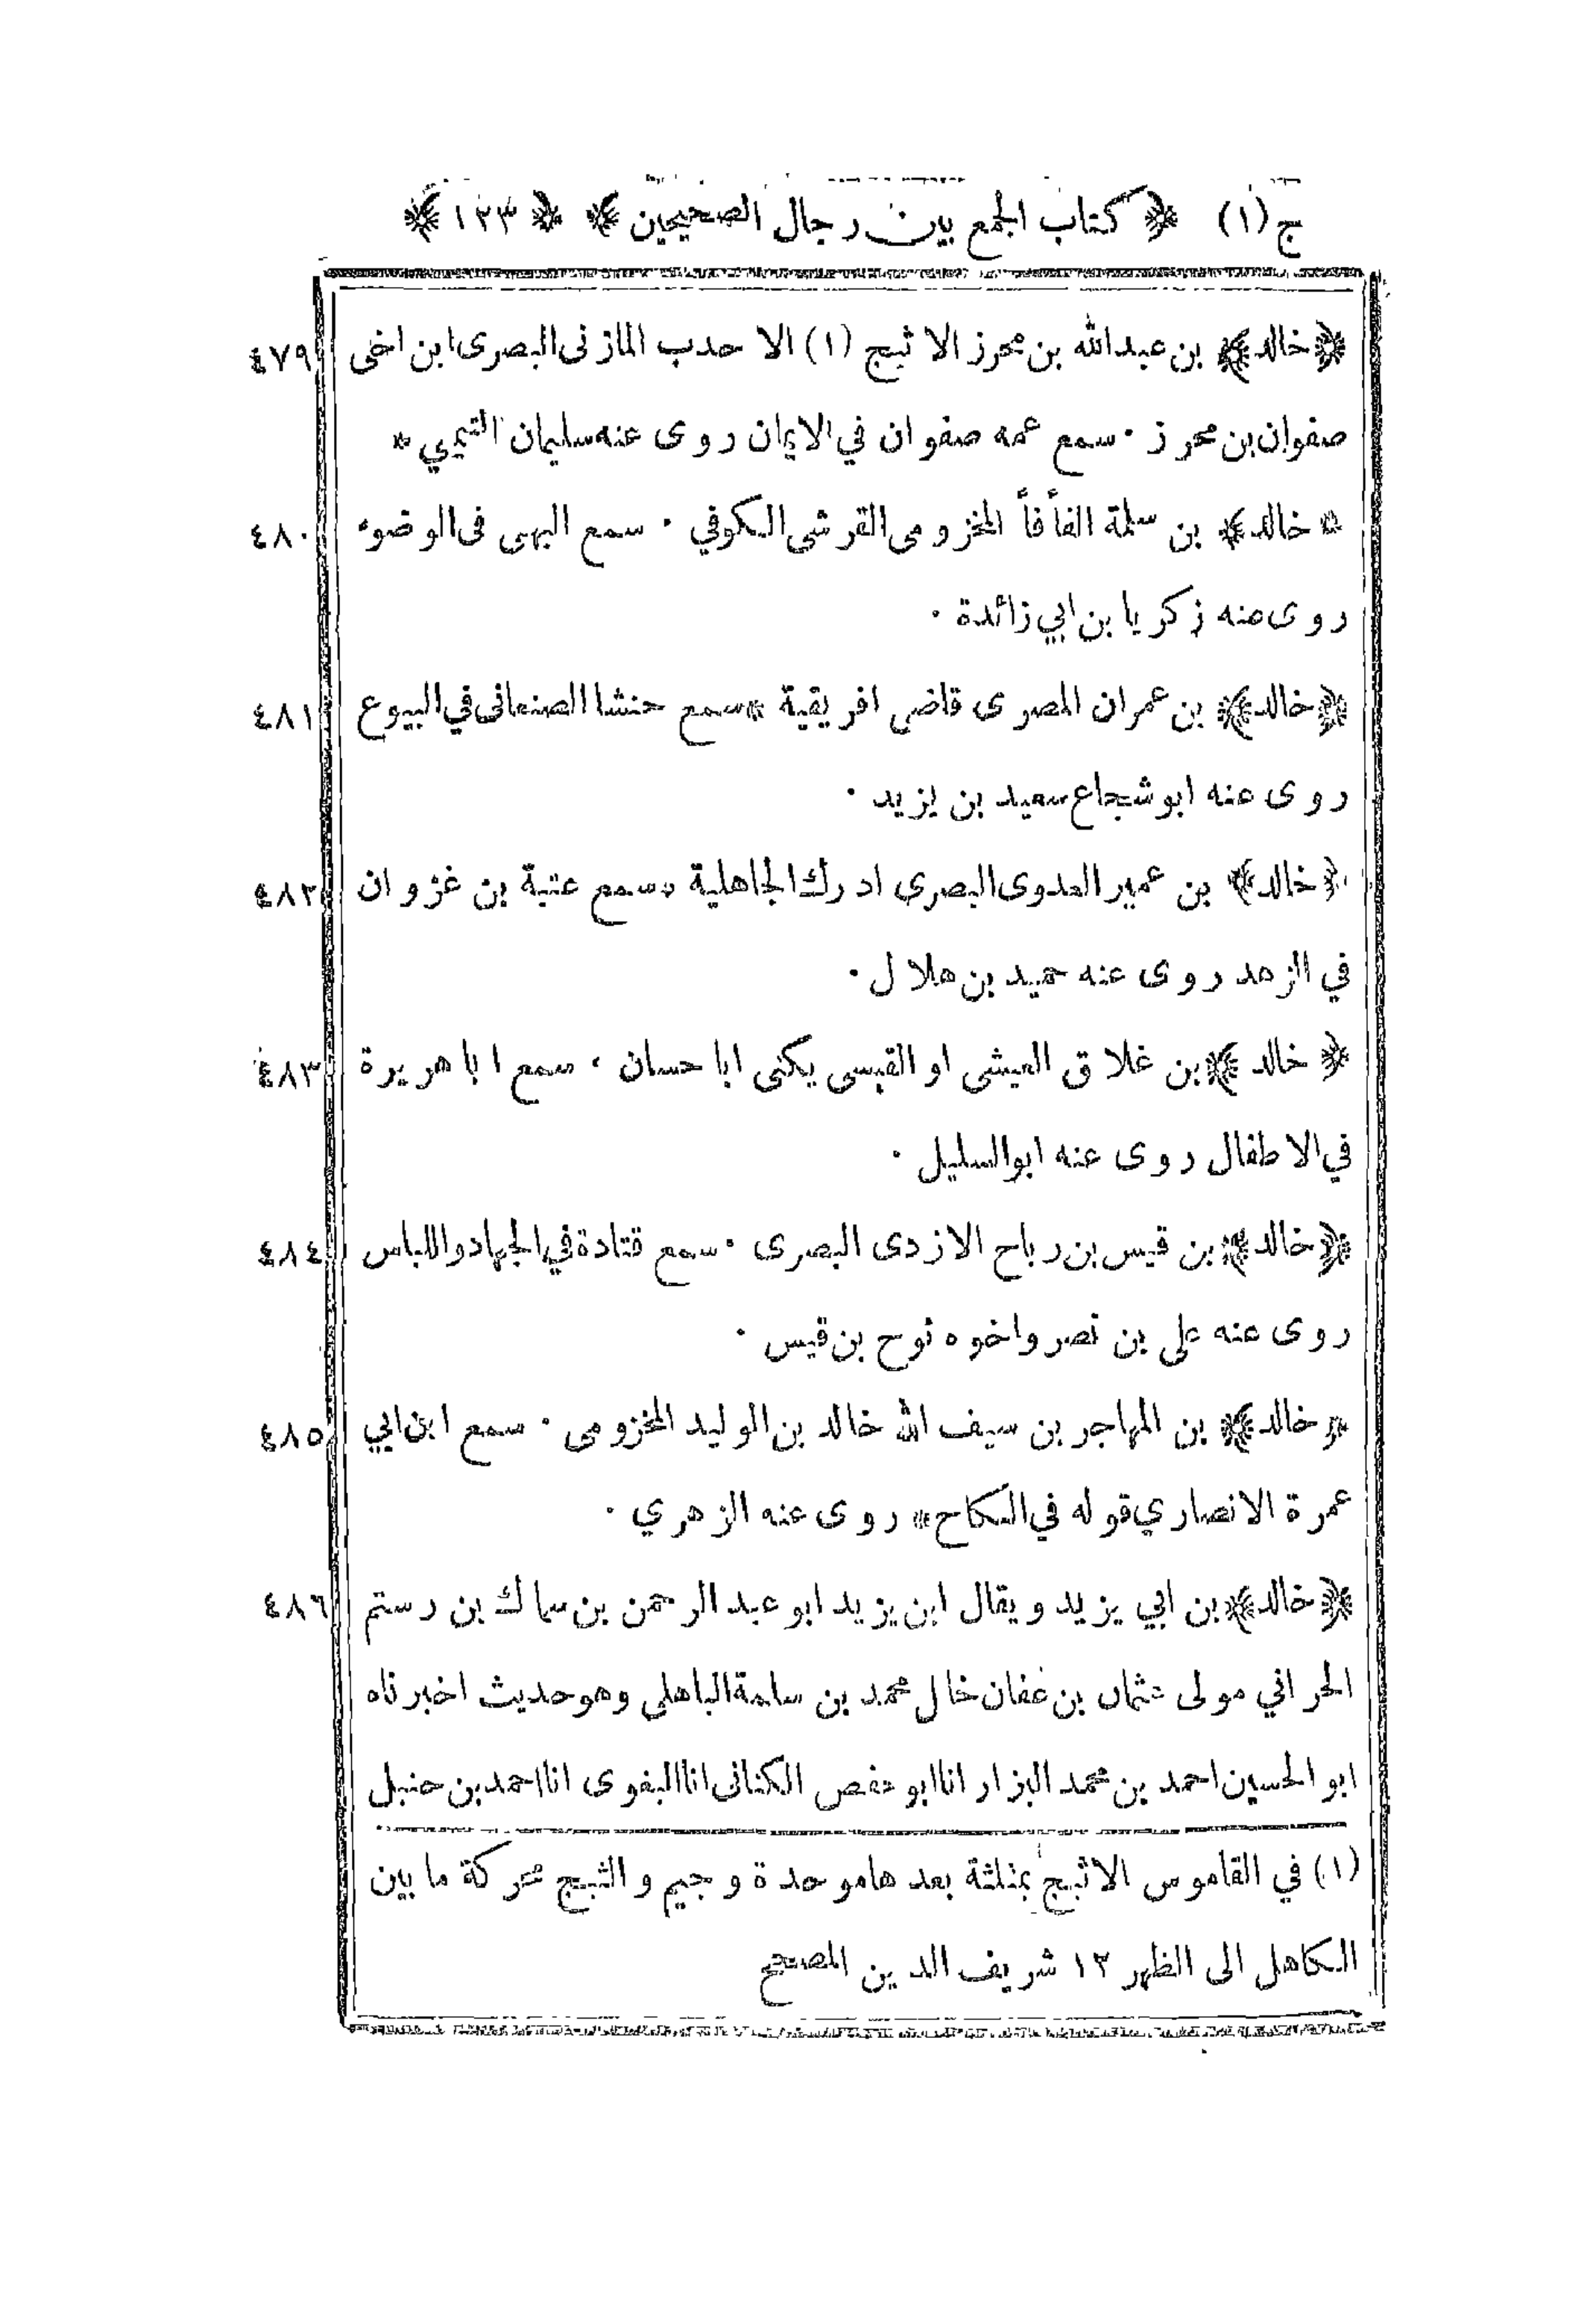 ج (١) ﴿ كتاب الجمع بين رجال الصحيحين ﴾ ﴿ ١٢٣ ﴾
﴿ خالد ﴾ بن عبد الله بن محرز الاثبج (١) الاحدب المازنى البصرى ابن اخى ٤٧٩
صفوان بن محرز · سمع عمه صفوان في الايمان روى عنه سليمان التيمي *
* خالد ﴾ بن سلمة الفأفأ المخزومى القرشى الكوفي · سمع البهى فى الوضوء ٤٨٠
روى عنه زكريا بن ابي زائدة ·
﴿ خالد ﴾ بن عمران المصرى قاضى افريقية * سمع حنشا الصنعانى في البيوع ٤٨١
روى عنه ابو شجاع سعيد بن يزيد ·
﴿ خالد ﴾ بن عمير العدوى البصرى ادرك الجاهلية * سمع عتبة بن غزوان ٤٨٢
في الزهد روى عنه حميد بن هلال ·
﴿ خالد ﴾ بن غلاق العيشى او القيسى يكنى ابا حسان · سمع ابا هريرة ٤٨٣
في الاطفال روى عنه ابو السليل ·
﴿ خالد ﴾ بن قيس بن رباح الازدى البصرى · سمع قتادة في الجهاد واللباس ٤٨٤
روى عنه على بن نصر واخوه نوح بن قيس ·
﴿ خالد ﴾ بن المهاجر بن سيف الله خالد بن الوليد المخزومى · سمع ابن ابي ٤٨٥
عمرة الانصاري قوله في النكاح * روى عنه الزهري ·
﴿ خالد ﴾ بن ابي يزيد ويقال ابن يزيد ابو عبد الرحمن بن سماك بن رستم ٤٨٦
الحراني مولى عثمان بن عفان خال محمد بن سلمة الباهلى وهو حديث اخبرناه
ابو الحسين احمد بن محمد البزار انا ابو حفص الكنانى انا البغوى انا احمد بن حنبل
(١) في القاموس الاثبج بمثلثة بعدها موحدة وجيم والثبج محركة ما بين
الكاهل الى الظهر ١٢ شريف الدين المصحح